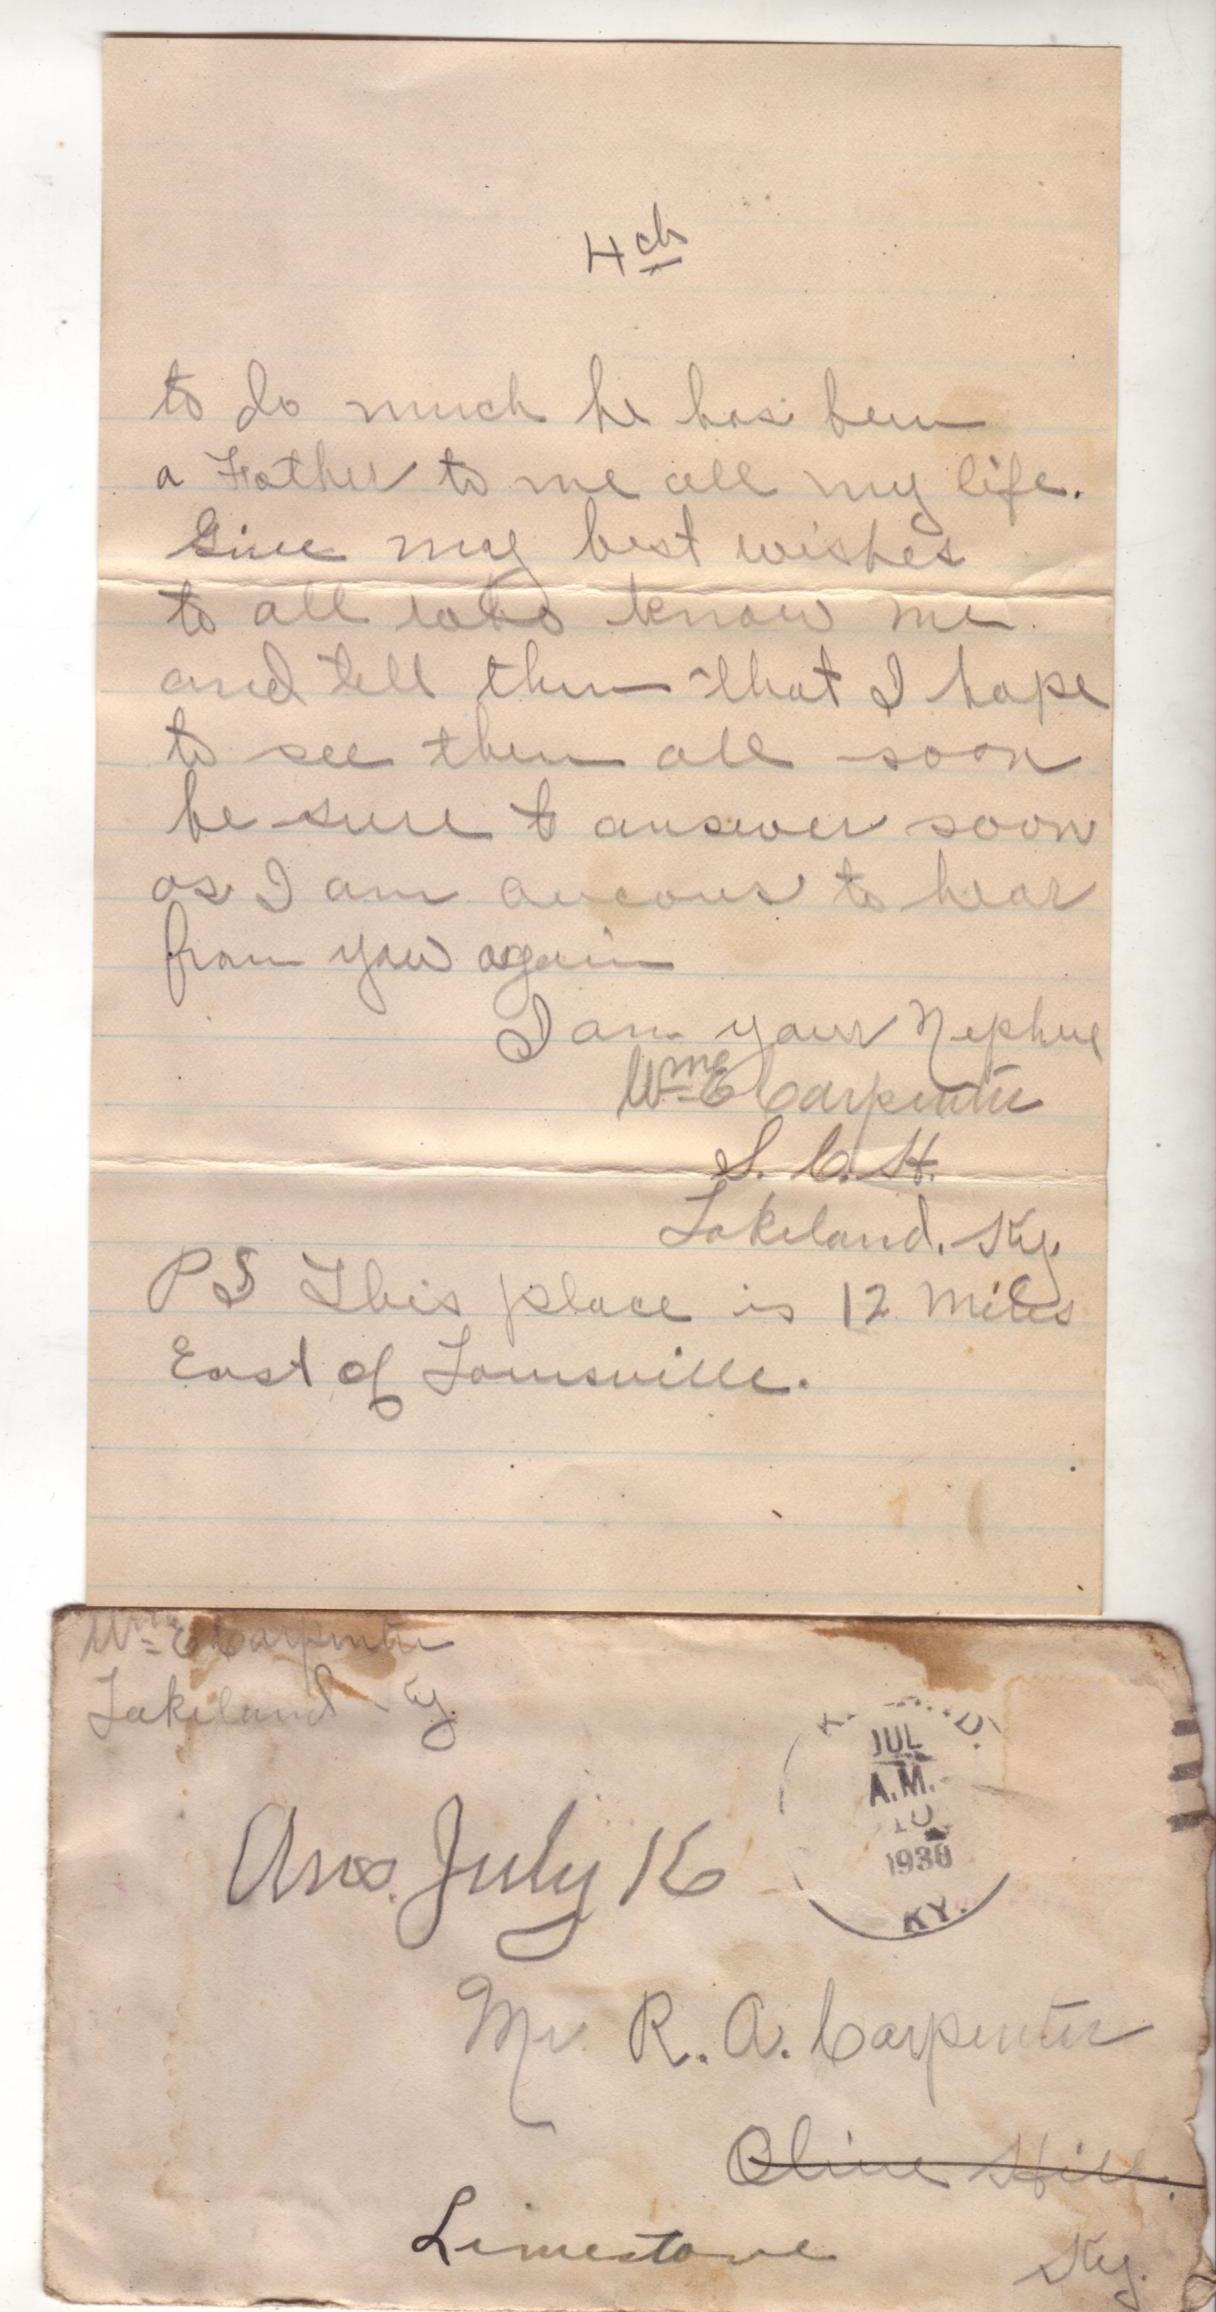 4th
to do much he has been
a Father to me all my life.
Give my best wishes
to all who know me
and tell them that I hope
to see them all soon
be sure to answer soon
as I am ancous to hear
from you again
I am your Nephue
Wm E Carpenter
S. C. H.
Lakeland. Ky.
PS This place is 12 Miles
East of Louisville.
Wm E Carpenter
Lakeland Ky.
JUL
A.M.
10
1930
KY.
Ans. July 16
Mr R. A. Carpenter
Olive Hill.
Limestone
Ky.